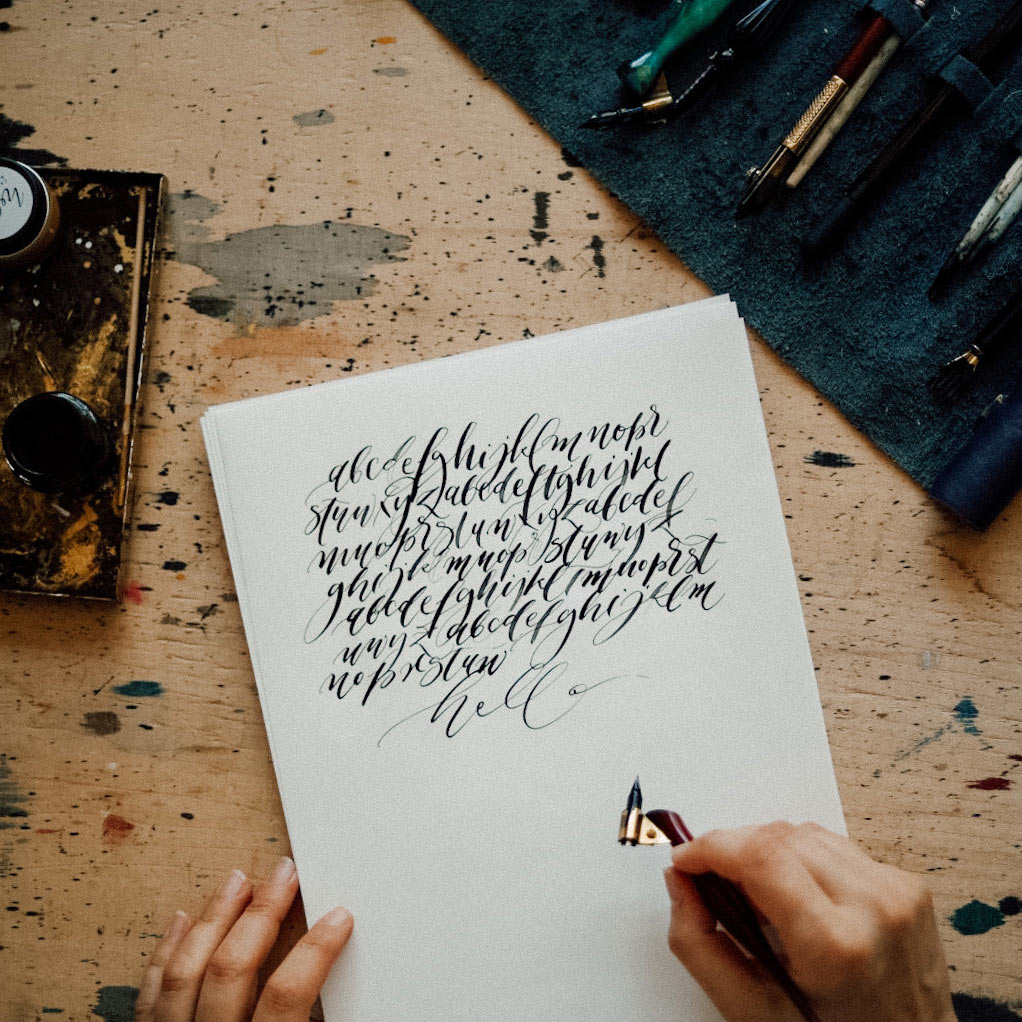 abcdefghijklmnopr
stuwxyzabcdefghijkl
mnoprstuwxyzabcdef
ghijklmnoprstuwyz
abcdefghijklmnoprst
uwyzabcdefghijklm
noprstuw
hello